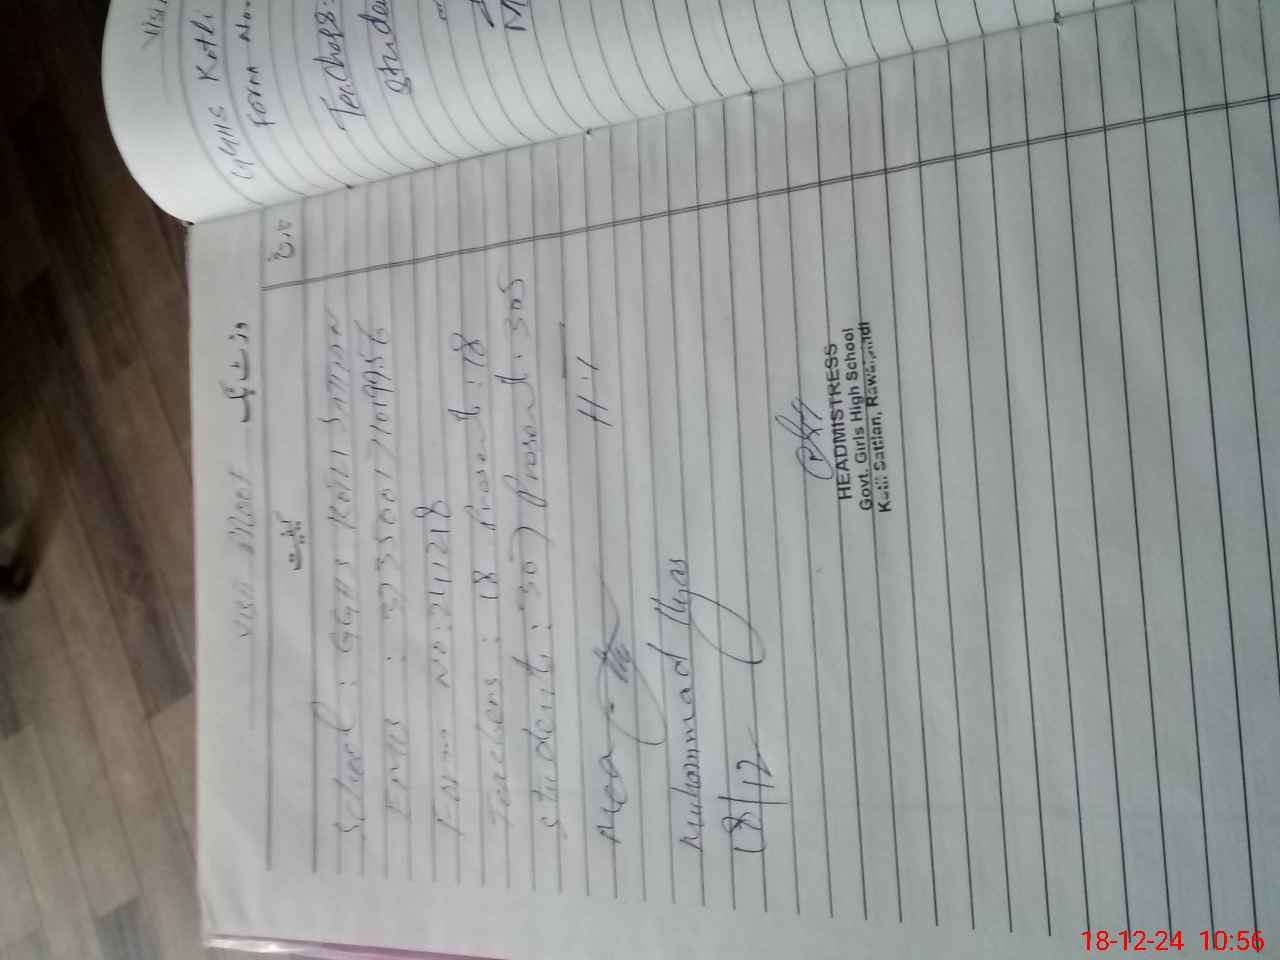 GGHS Kotli
Form No-
Teachers:
Stude
Visit Sheet وزٹ بک
کیفیت تاریخ
School : GGHS Kotli Sattian
Emis :
Form No: 241218
Teachers : 18 Present : 18
Students : 307 Present : 305
Mea
Muhammad Ilyas
18/12
HEADMISTRESS
Govt. Girls High School
Kotli Sattian, Rawalpindi
18-12-24 10:56